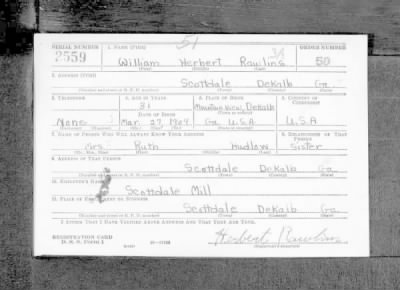 51
SERIAL NUMBER 1. NAME (Print) ORDER NUMBER
2559 William Herbert Rawlins 50
(First) (Middle) (Last)
2. ADDRESS (Print)
Scottdale DeKalb Ga.
(Number and street or R. F. D. number) (Town) (County) (State)
3. TELEPHONE 4. AGE IN YEARS 5. PLACE OF BIRTH 6. COUNTRY OF CITIZENSHIP
31 Mountain View, DeKalb
DATE OF BIRTH (Town or county)
None Mar. 27, 1909 Ga U.S.A U.S.A
(Exchange) (Number) (Mo.) (Day) (Yr.) (State or country)
7. NAME OF PERSON WHO WILL ALWAYS KNOW YOUR ADDRESS 8. RELATIONSHIP OF THAT PERSON
Mrs. Ruth Hudlow Sister
(Mr., Mrs., Miss) (First) (Middle) (Last)
9. ADDRESS OF THAT PERSON
Scottdale DeKalb Ga.
(Number and street or R. F. D. number) (Town) (County) (State)
10. EMPLOYER'S NAME
Scottdale Mill
11. PLACE OF EMPLOYMENT OR BUSINESS
Scottdale DeKalb Ga.
(Number and street or R. F. D. number) (Town) (County) (State)
I AFFIRM THAT I HAVE VERIFIED ABOVE ANSWERS AND THAT THEY ARE TRUE.
REGISTRATION CARD
D. S. S. Form 1 (over) Herbert Rawlins
(Registrant's signature)